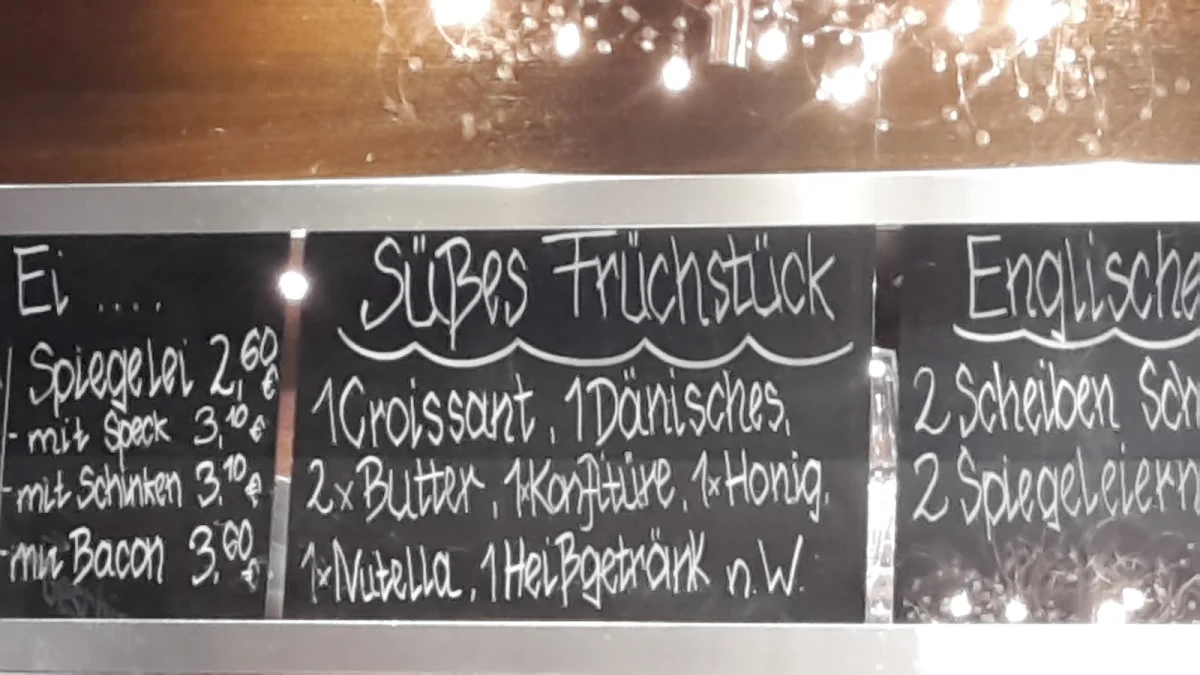 Ei ....
Spiegelei 2,60 €
- mit Speck 3,10 €
- mit Schinken 3,10 €
- mit Bacon 3,60 €
Süßes Früchstück
1 Croissant, 1 Dänisches,
2x Butter, 1x Konfitüre, 1x Honig,
1x Nutella, 1 Heißgetränk n.W.
Englische
2 Scheiben Sch
2 Spiegeleiern